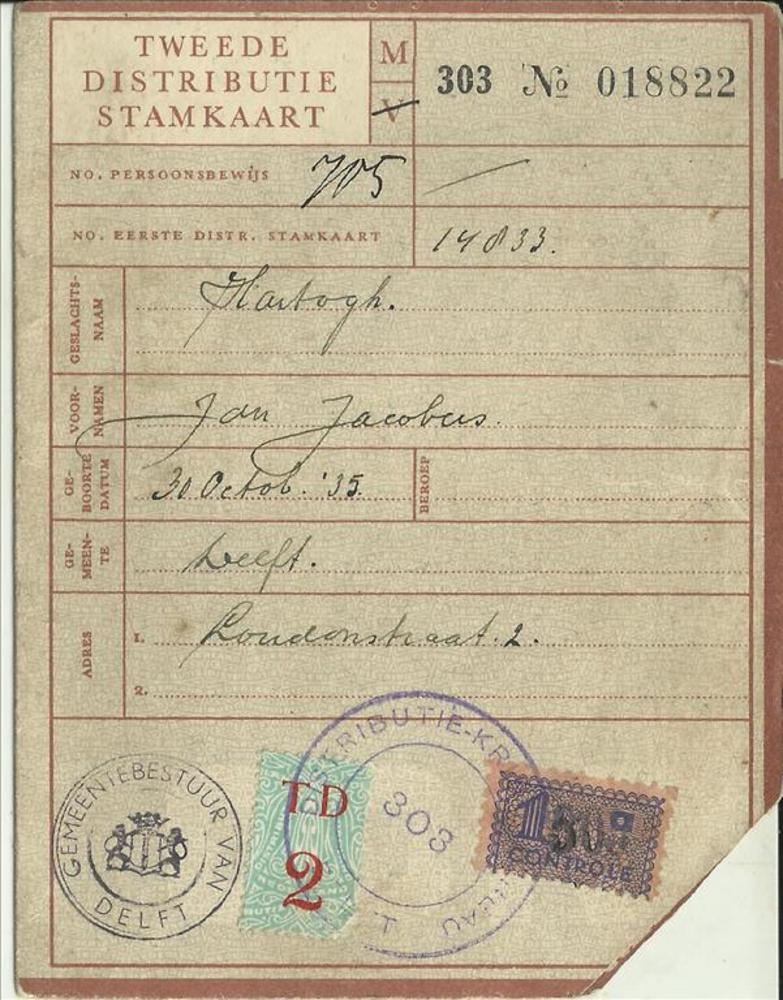 TWEEDE
DISTRIBUTIE
STAMKAART
M
V
303 № 018822
NO. PERSOONSBEWIJS 705 —
NO. EERSTE DISTR. STAMKAART 14833.
GESLACHTS-
NAAM
Hartogh.
VOOR-
NAMEN
Jan Jacobus.
GE-
BOORTE
DATUM
30 Octob. '35.
BEROEP
GE-
MEEN-
TE
Delft.
ADRES
1. Loudonstraat. 2.
2.
GEMEENTEBESTUUR VAN
DELFT
TD
2
303
1
50
CONTROLE